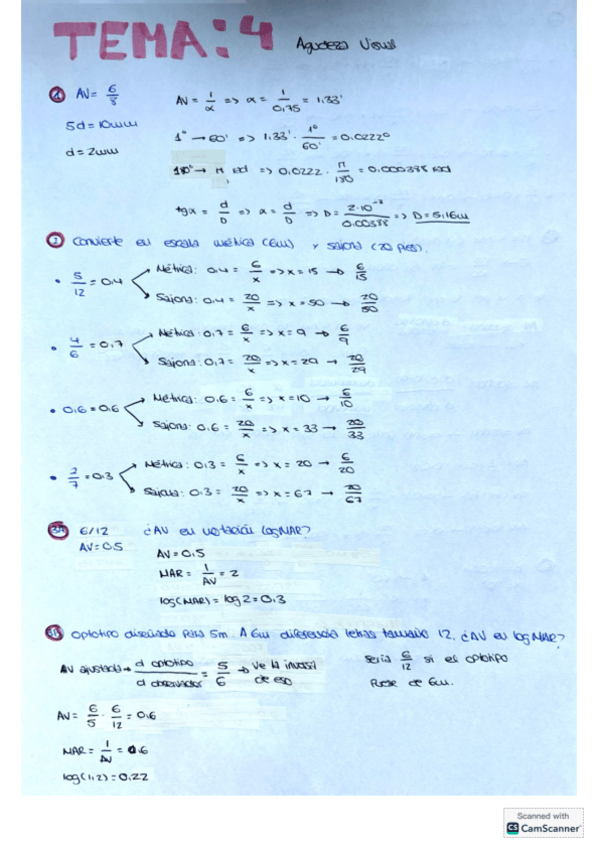 TEMA: 4 Agudeza Visual
1 AV = 6/8 AV = 1/α => α = 1/0,75 = 1,33'
5d = 10mm 1° → 60' => 1,33' · 1°/60' = 0,0222°
d = 2mm 180° → π rad => 0,0222 · π/180 = 0,000388 rad
tgα = d/D => α = d/D => D = 2·10⁻³/0,00388 => D = 5,16m
2 Convierte en escala métrica (6m) y sajona (20 pies).
• 5/12 = 0,4 Métrica: 0,4 = 6/x => x = 15 → 6/15
Sajona: 0,4 = 20/x => x = 50 → 20/50
• 4/6 = 0,7 Métrica: 0,7 = 6/x => x = 9 → 6/9
Sajona: 0,7 = 20/x => x = 29 → 20/29
• 0,6 = 0,6 Métrica: 0,6 = 6/x => x = 10 → 6/10
Sajona: 0,6 = 20/x => x = 33 → 20/33
• 2/7 = 0,3 Métrica: 0,3 = 6/x => x = 20 → 6/20
Sajona: 0,3 = 20/x => x = 67 → 20/67
6/12 ¿AV en notación logMAR?
AV = 0,5 AV = 0,5
MAR = 1/AV = 2
log(MAR) = log 2 = 0,3
Optotipo diseñado para 5m. A 6m diferencia letras tamaño 12. ¿AV en logMAR?
AV ajustada → d optotipo/d observador = 5/6 → Ve la inversa de eso
Sería 6/12 si el optotipo
fuese de 6m.
AV = 6/5 · 6/12 = 0,6
MAR = 1/AV = 0,6
log(1,2) = 0,22
Scanned with
CS CamScanner